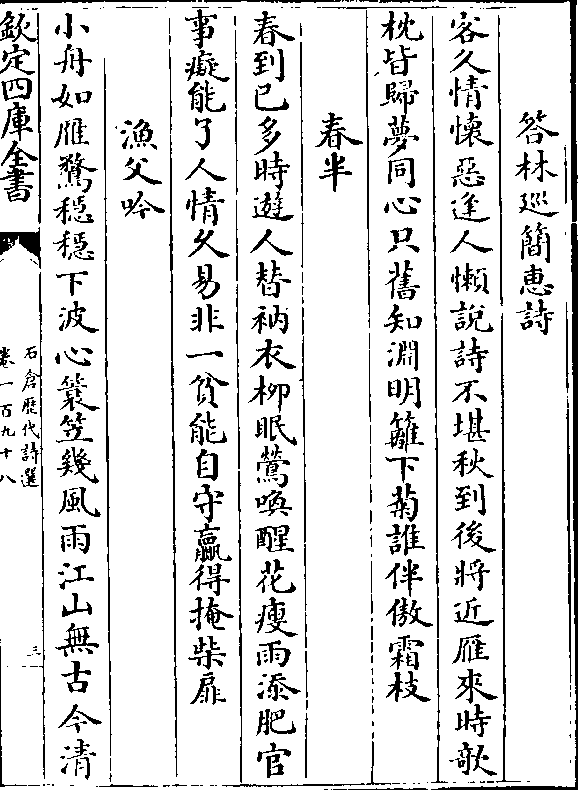 答林巡簡惠詩
客久情懷惡逢人懶說詩不堪秋到後將近雁來時欹
枕皆歸夢同心只舊知淵明籬下菊誰伴傲霜枝
春半
春到已多時遊人替衲衣柳眠鶯喚醒花瘦雨添肥官
事癡能了人情久易非一貧能自守贏得掩柴扉
漁父吟
小舟如雁鶩穏穏下波心簑笠幾風雨江山無古今清
欽定四庫全書
石倉歷代詩選
卷一百九十八
三